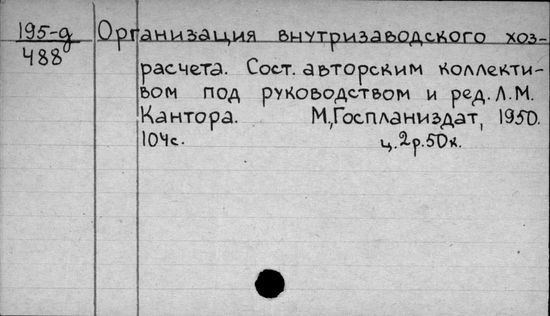 195-д
488
Организация внутризаводского хоз-
расчета. Сост. авторским коллекти-
вом под руководством и ред. Л.М.
Кантора. М,Госпланиздат, 1950.
104с. ц.2р.50к.